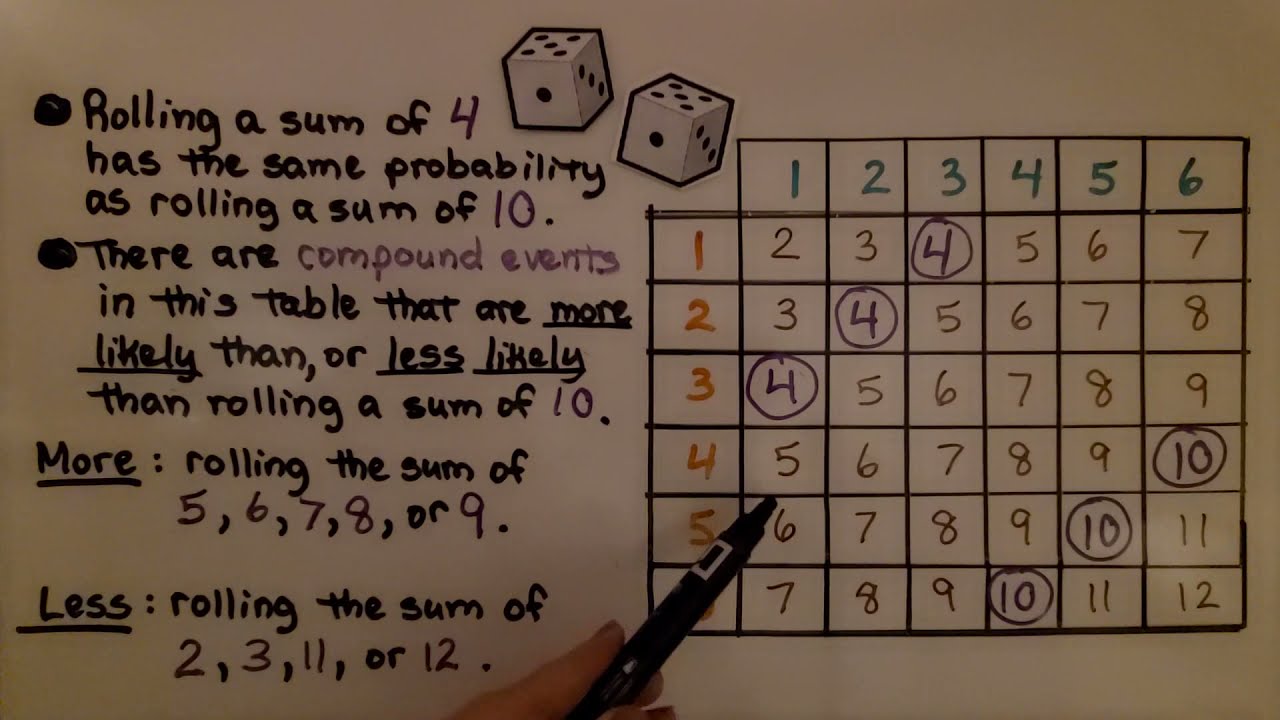 Rolling a sum of 4
has the same probability
as rolling a sum of 10.
There are compound events
in this table that are more
likely than, or less likely
than rolling a sum of 10.
More: rolling the sum of
5, 6, 7, 8, or 9.
Less: rolling the sum of
2, 3, 11, or 12.
1 2 3 4 5 6
1 2 3 4 5 6 7
2 3 4 5 6 7 8
3 4 5 6 7 8 9
4 5 6 7 8 9 10
5 6 7 8 9 10 11
7 8 9 10 11 12